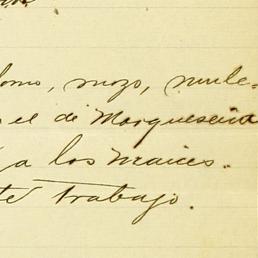 lomo, mozo, mule-
el de Marqueseña
a los maices.
te trabajo.